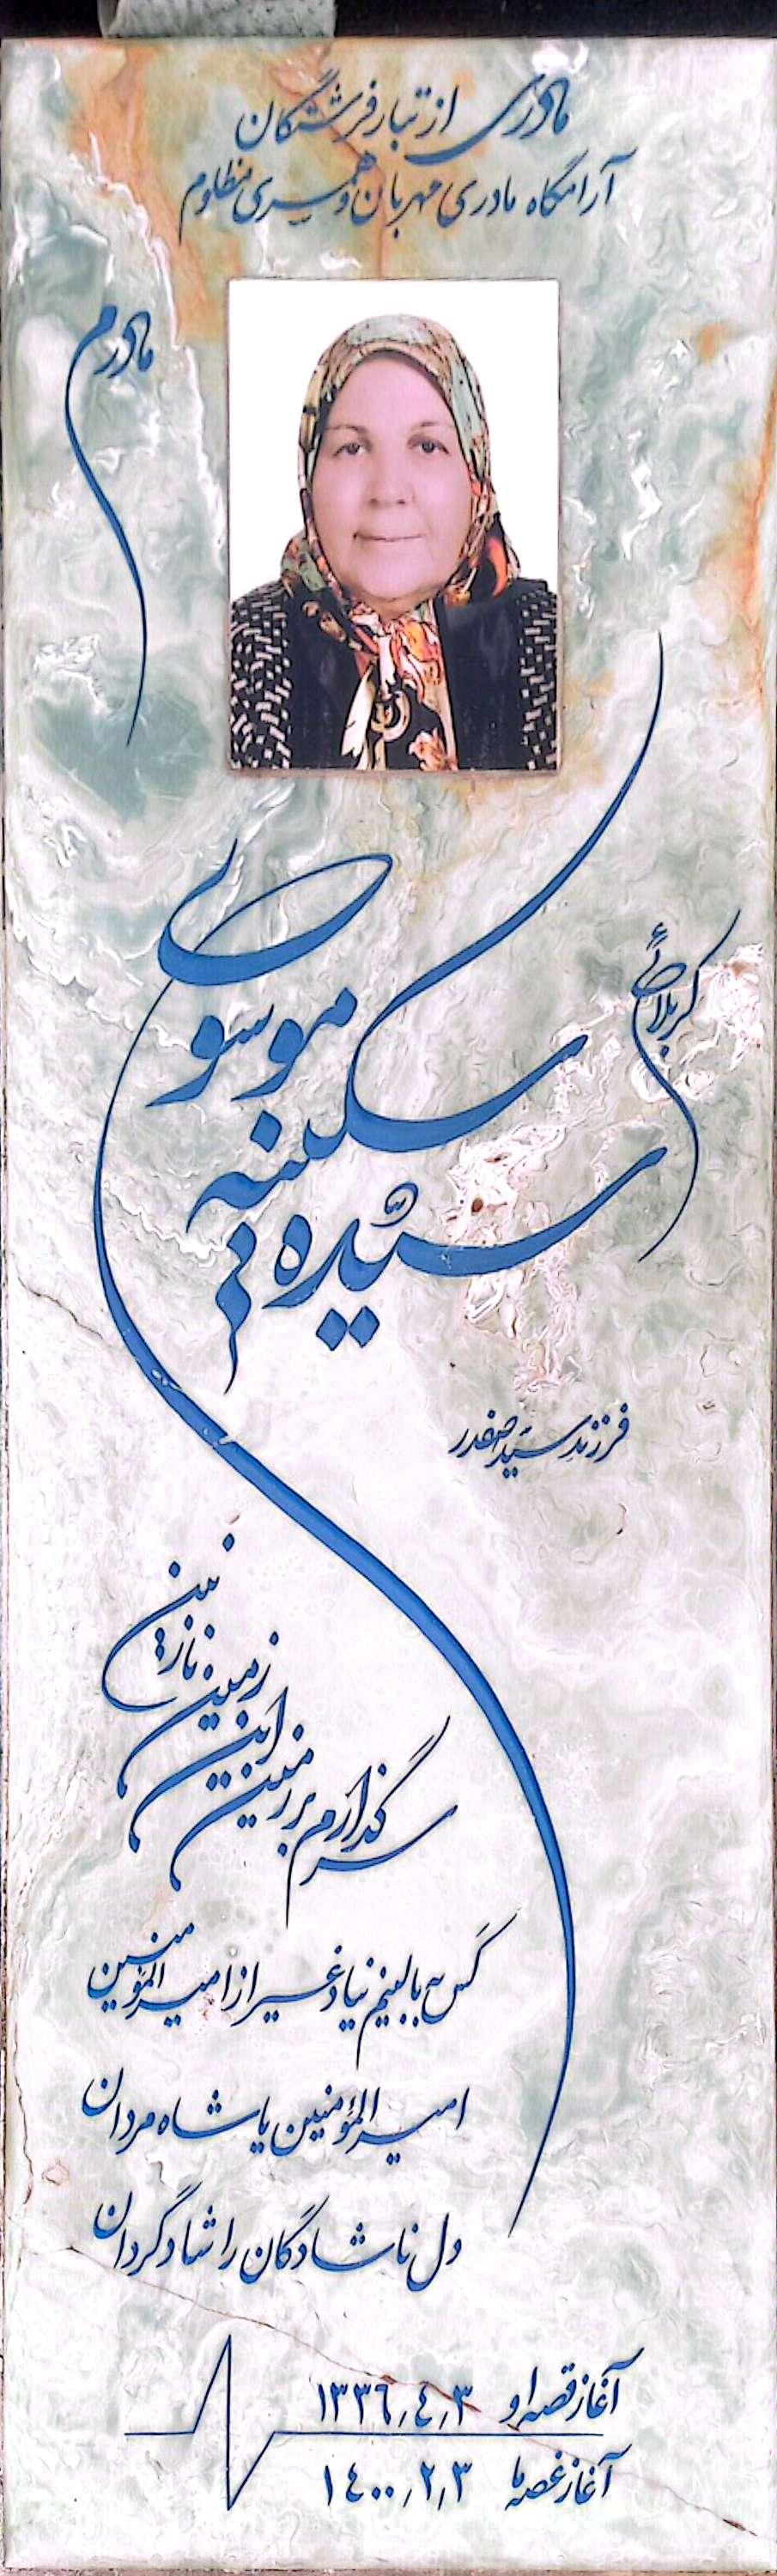 مادری از تبار فرشتگان
آرامگاه مادری مهربان و همسری مظلوم
مادرم
کربلائی
سیده سکینه موسوی
فرزند سید صفدر
سر گذارم بر زمین این زمین نازنین
کس به بالینم نیاد غیر از امیرالمؤمنین
امیرالمؤمنین یا شاه مردان
دل ناشادگان را شاد گردان
آغاز قصه او ١٣٣٦,٤,٣
آغاز غصه ما ١٤٠٠,٢,٣